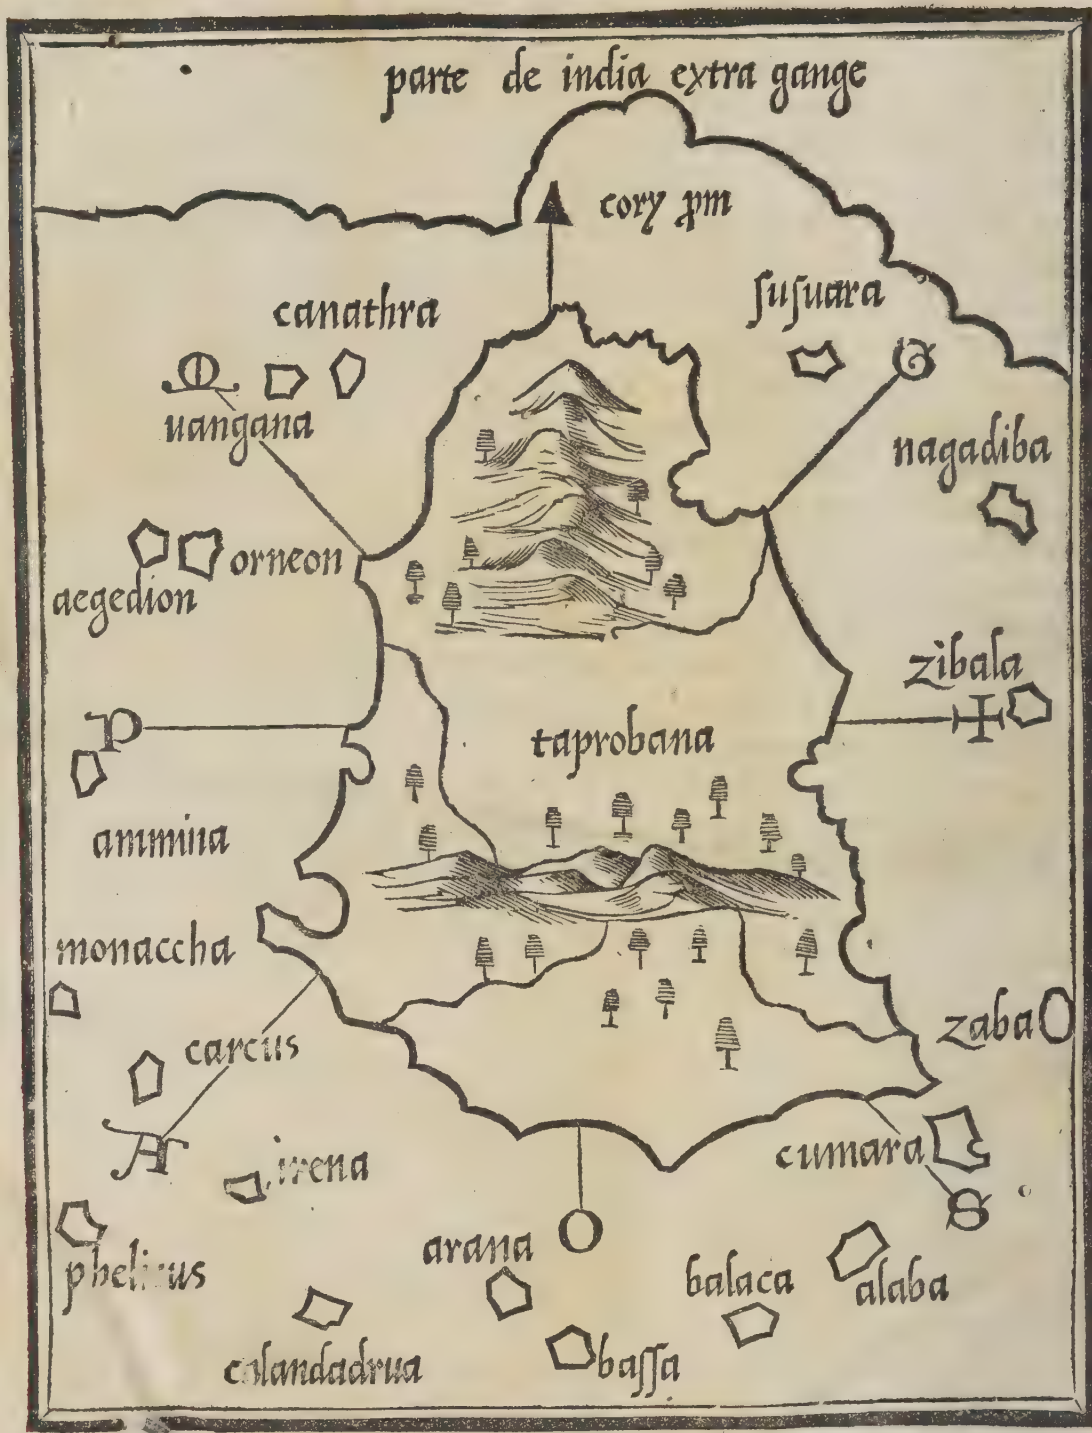 parte de india extra gange
cory ꝓm
ſuſuara
canathra
G
M
uangana
nagadiba
orneon
aegedion
zibala
P
taprobana
ammina
monaccha
zaba
carcus
A
irena
cumara
S
O
arana
phelicus
balaca
alaba
calandadrua
baſſa